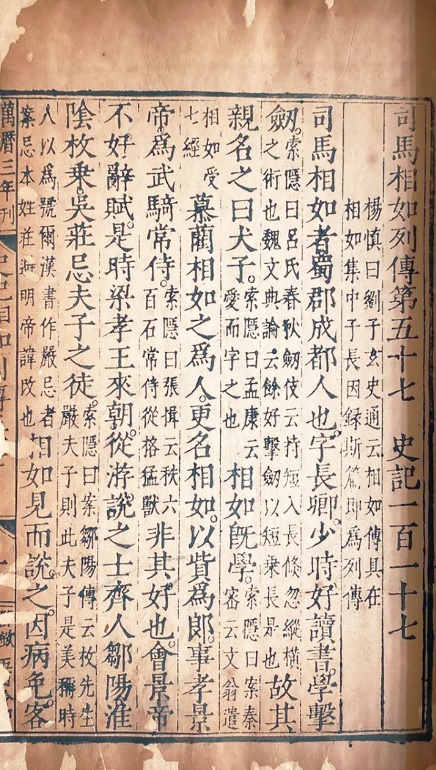 司馬相如列傳第五十七 史記一百一十七
楊慎曰劉子玄史通云相如傳具在
相如集中子長因録斯篇即爲列傳
司馬相如者蜀郡成都人也。字長卿。少時好讀書。學擊
劒。索隱曰呂氏春秋劒伎云持短入長倐忽縱橫
之術也魏文典論云餘好擊劒以短乗長是也 故其
親名之曰犬子。索隱曰孟康云
愛而字之也 相如既學。索隱曰案秦
宻云文翁遣
相如受
七經 慕藺相如之爲人。更名相如。以貲爲郎。事孝景
帝。爲武騎常侍。索隱曰張揖云秩六
百石常侍從格猛獸 非其好也。會景帝
不好辭賦。是時梁孝王來朝。從游說之士齊人鄒陽淮
陰枚乗。吳莊忌夫子之徒。索隱曰案鄒陽傳云枚先生
嚴夫子則此夫子是美稱時
人以爲號爾漢書作嚴忌者
案忌本姓莊避明帝諱改也 相如見而說之。因病免。客
萬曆三年刊